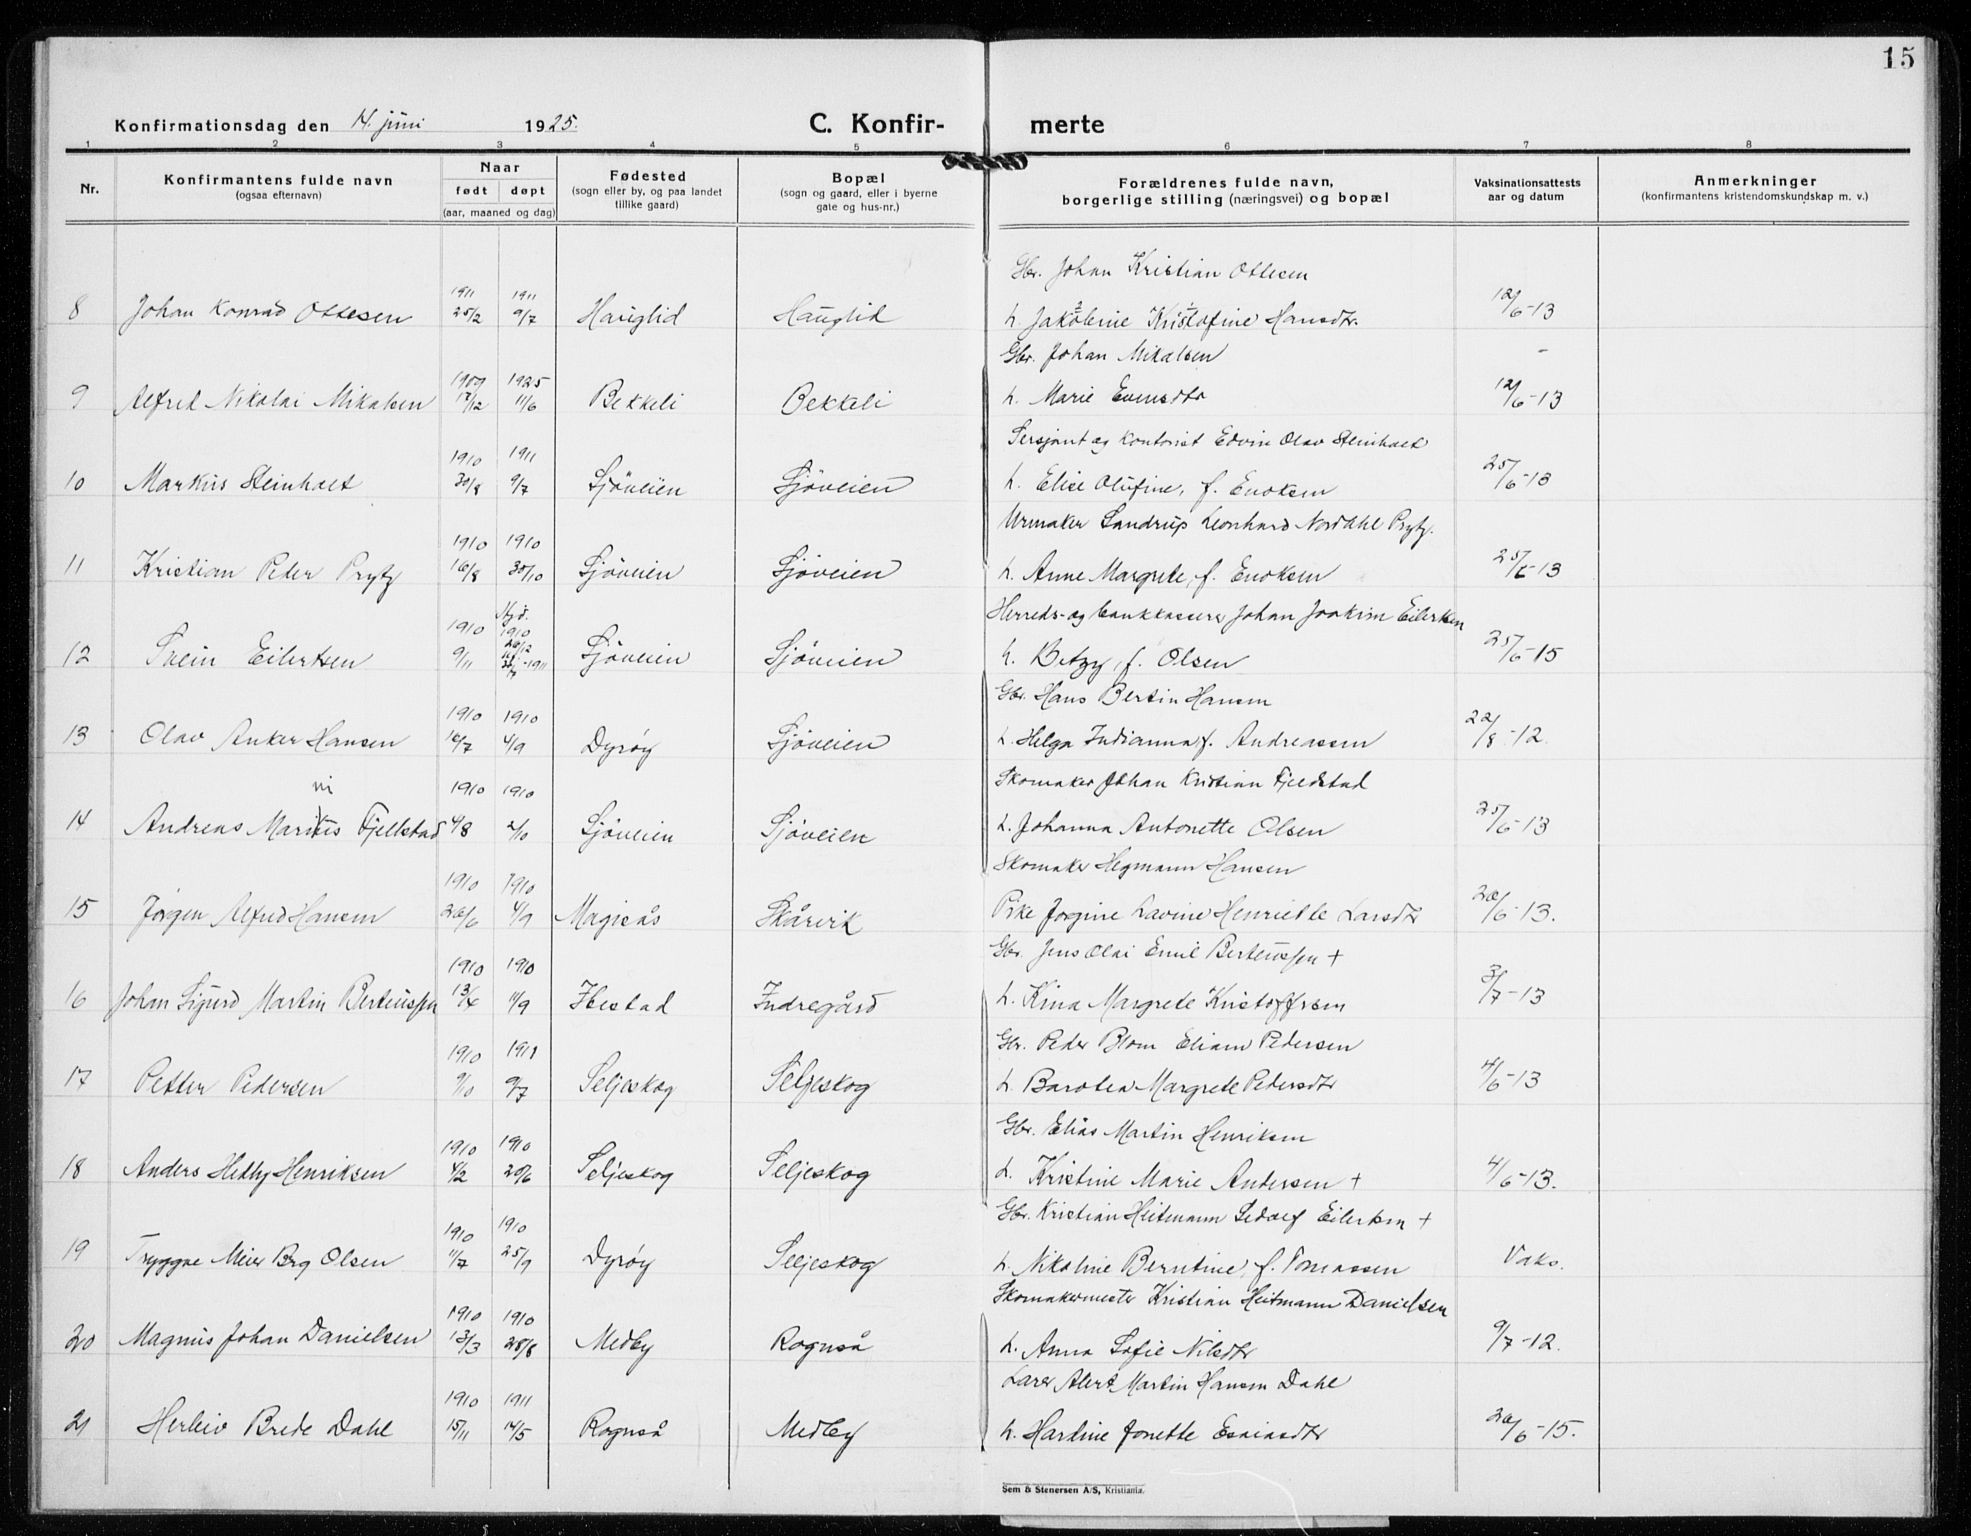 15
Konfirmationsdag den 14. juni 1925.
C. Konfir- merte
1 2 3 4 5 6 7 8
Nr. Konfirmantens fulde navn (ogsaa efternavn) Naar født døpt (aar, maaned og dag) Fødested (sogn eller by, og paa landet tillike gaard) Bopæl (sogn og gaard, eller i byerne gate og hus-nr.) Forældrenes fulde navn, borgerlige stilling (næringsvei) og bopæl Vaksinationsattests aar og datum Anmerkninger (konfirmantens kristendomskundskap m. v.)
Gbr. Johan Kristian Ottesen
8 Johan Konrad Ottesen 1911 25/2 1911 9/7 Hauglid Hauglid h. Jakobine Kristofine Hansdtr. 12/6-13
Gbr. Johan Mikalsen -
9 Alfred Nikolai Mikalsen 1909 17/12 1925 11/6 Bekkeli Bekkeli h. Marie Evensdtr 12/6-13
Sersjant og kontorist Edvin Olav Steinholt
10 Markus Steinholt 1910 30/8 1911 9/7 Sjöveien Sjöveien h. Elise Olufine, f. Enoksen 25/6-13
Urmaker Sandrup Leonhard Nordahl Prytz.
11 Kristian Peder Prytz 1910 16/8 1910 30/10 Sjöveien Sjöveien h. Anne Margrete, f. Enoksen 25/6-13
Herreds- og bankkasserer Johan Joakim Eilertsen
12 Svein Eilertsen 1910 9/11 Hjd. 1910 26/12 1911 Sjöveien Sjöveien h. Betzy, f. Olsen 25/6-15
Gbr. Hans Bertin Hansen
13 Olav Anker Hansen 1910 16/7 1910 4/9 Dyrøy Sjöveien h. Helga Indianna f. Andreassen 22/8-12.
Skomaker Johan Kristian Fjeldstad
ni
14 Andreas Marius Fjellstad 1910 4/8 1910 2/10 Sjöveien Sjöveien h. Johanna Antonette Olsen 25/6-13
Skomaker Hegmann Hansen
15 Jørgen Alfred Hansen 1910 26/6 1910 4/9 Magisås Skårvik Pike Jorgine Lavine Henriette Larsdtr 20/6-13.
Gbr. Jens Olai Emil Berteussen +
16 Johan Sigurd Martin Berteussen 1910 13/4 1910 11/9 Ibestad Indregård h. Kina Margrete Kristoffersen 3/7-13
Gbr. Peder Blom Eliam Pedersen
17 Petter Pedersen 1910 9/10 1911 9/7 Seljeskog Seljeskog h. Barolea Margrete Pedersdtr 4/6-13
Gbr. Elias Martin Henriksen
18 Anders Hetby Henriksen 1910 4/2 1910 20/6 Seljeskog Seljeskog h. Kristine Marie Andersen + 4/6-13.
Gbr. Kristian Heitmann Sedolf Eilertsen +
19 Tryggve Meier Berg Olsen 1910 11/7 1910 25/9 Dyrøy Seljeskog h. Nikoline Berntine, f. Tomassen Vaks.
Skomakermester Kristian Heitmann Danielsen
20 Magnus Johan Danielsen 1910 13/3 1910 28/8 Medby Rognså h. Anna Sofie Nilsdtr 9/7-12.
Lærer Alert Martin Hansen Dahl
21 Herleiv Brede Dahl 1910 15/11 1911 14/5 Rognså Medby h. Hartine Jonette Esaiasdtr 20/6-15.
Sem & Stenersen A/S, Kristiania.